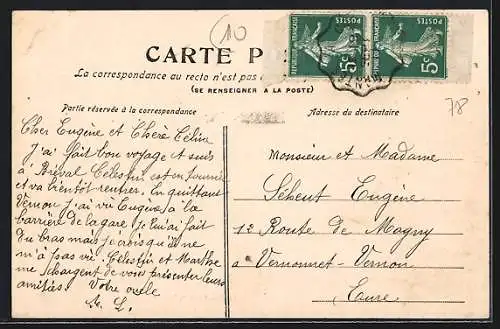 10
CARTE PO
La correspondance au recto n'est pas
(SE RENSEIGNER A LA POSTE)
REPUBLIQUE FRANÇAISE POSTES 5c
REPUBLIQUE FRANÇAISE POSTES 5c
78
Partie réservée à la correspondance
Cher Eugène et Chère Célina
J'ai fait bon voyage et suis
à Bréval Célestin est en tournée
et va bientôt rentrer. En quittant
Vernon j'ai vu Eugène à la
barrière de la gare je lui ai fait
du bras mais je crois qu'il ne
m'a pas vu. Célestin et Marthe
me chargent de vous présenter leurs
amitiés. Votre
Adresse du destinataire
Monsieur et Madame
Séheut Eugène
12 Route de Magny
à Vernonnet-Vernon
Eure